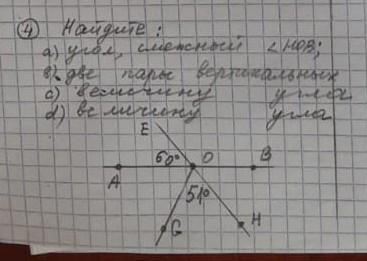 ④ Найдите:
a) угол, смежный ∠HOB;
b) две пары вертикальных
c) величину угла
d) величину угла
E
60° O B
A
51°
G H